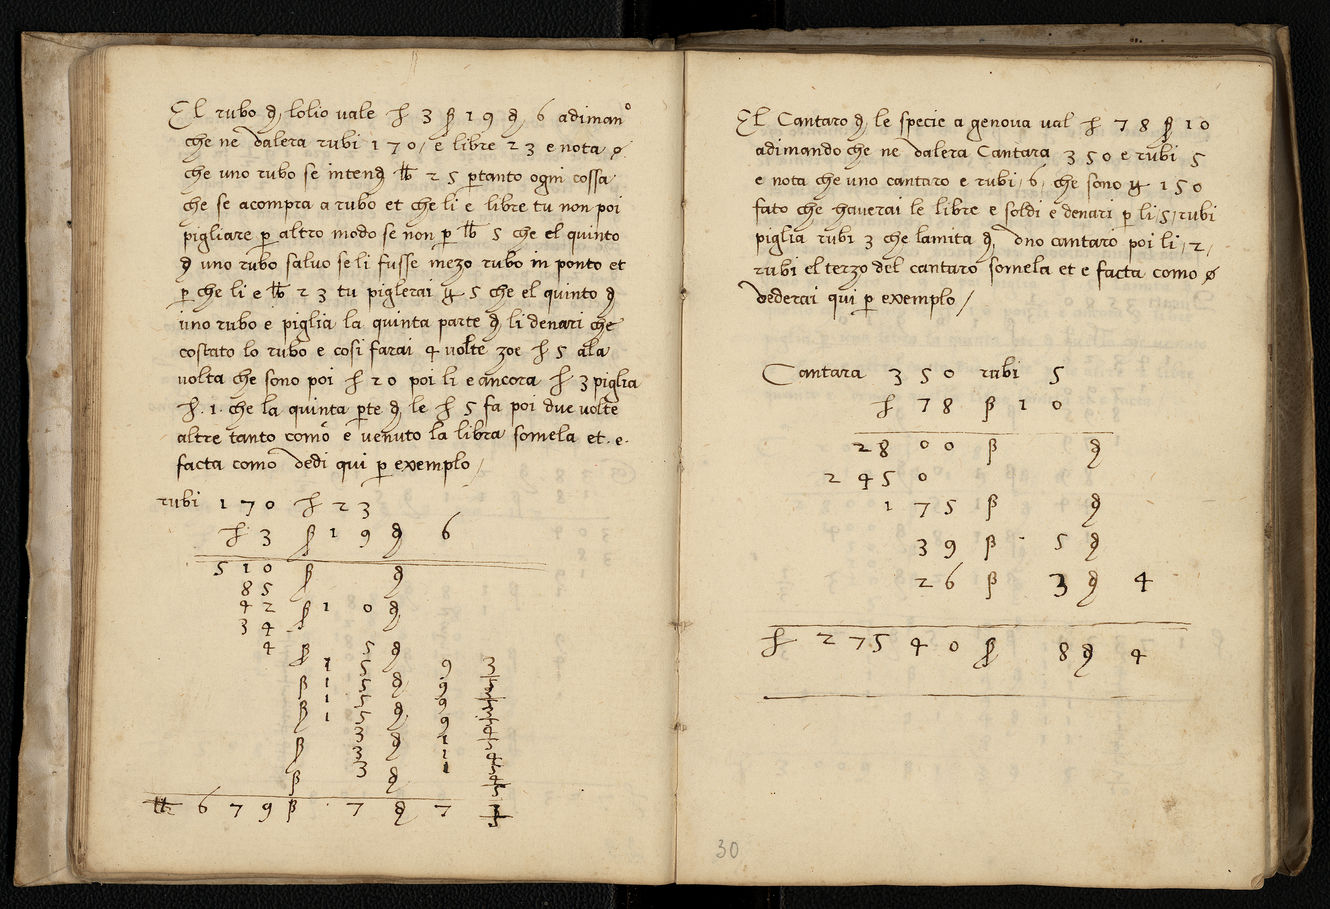 El rubo ꝺ lolio vale ₶ 3 ꞵ 19 ꝺ 6 adimanº
che ne dalera rubi 170 / e libre 23 e nota ø
che uno rubo se intenꝺ ℔ 25 ꝑtanto ogni cossa
che se acompra a rubo et che li e libre tu non poi
pigliare ꝑ altro modo se non ꝑ ℔ 5 che el quinto
ꝺ uno rubo salvo se li fusse mezo rubo in ponto et
ꝑ che li e ℔ 23 tu piglerai ℔ 5 che el quinto ꝺ
uno rubo e piglia la quinta parte ꝺ li denari che
costato lo rubo e cosi farai 4 volte zoe ₶ 5 ala
volta che sono poi ₶ 20 poi li e ancora ₶ 3 piglia
₶ .1. che la quinta ꝑte ꝺ le ₶ 5 fa poi due volte
altre tanto como e venuto la libra somela et .e.
facta como dedi qui ꝑ exemplo /
rubi 170 ₶ 23
₶ 3 ꞵ 19 ꝺ 6
510 ꞵ ꝺ
85
42 ꞵ 10 ꝺ
34
4 ꞵ 5 ꝺ
1 5 9 3/5
ꞵ 1 5 ꝺ 9 3/5
1 5 9 3/5
ꞵ 1 5 ꝺ 9 3/5
ꞵ 3 ꝺ 1 4/5
3 1 4/5
ꞵ 3 ꝺ 1 4/5
₶ 679 ꞵ 7 ꝺ 7 4/5
El Cantaro ꝺ le specie a genova val ₶ 78 ꞵ 10
adimando che ne dalera Cantara 350 e rubi 5
e nota che uno cantaro e rubi / 6 / che sono ℔ 150
fato che haverai le libre e soldi e denari ꝑ li / 5 / rubi
piglia rubi 3 che lamita ꝺ uno cantaro poi li / 2 /
rubi el terzo del cantaro somela et e facta como ø
vederai qui ꝑ exemplo /
Cantara 350 rubi 5
₶ 78 ꞵ 10
2800 ꞵ ꝺ
2450
175 ꞵ ꝺ
39 ꞵ 5 ꝺ
26 ꞵ 3 ꝺ 4
₶ 27540 ꞵ 8 ꝺ 4
30